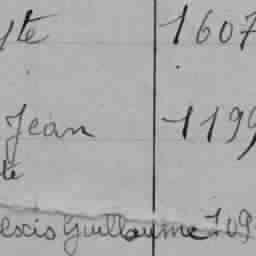 yte 1607
Jean 1199
té
lexis Guillaume 109